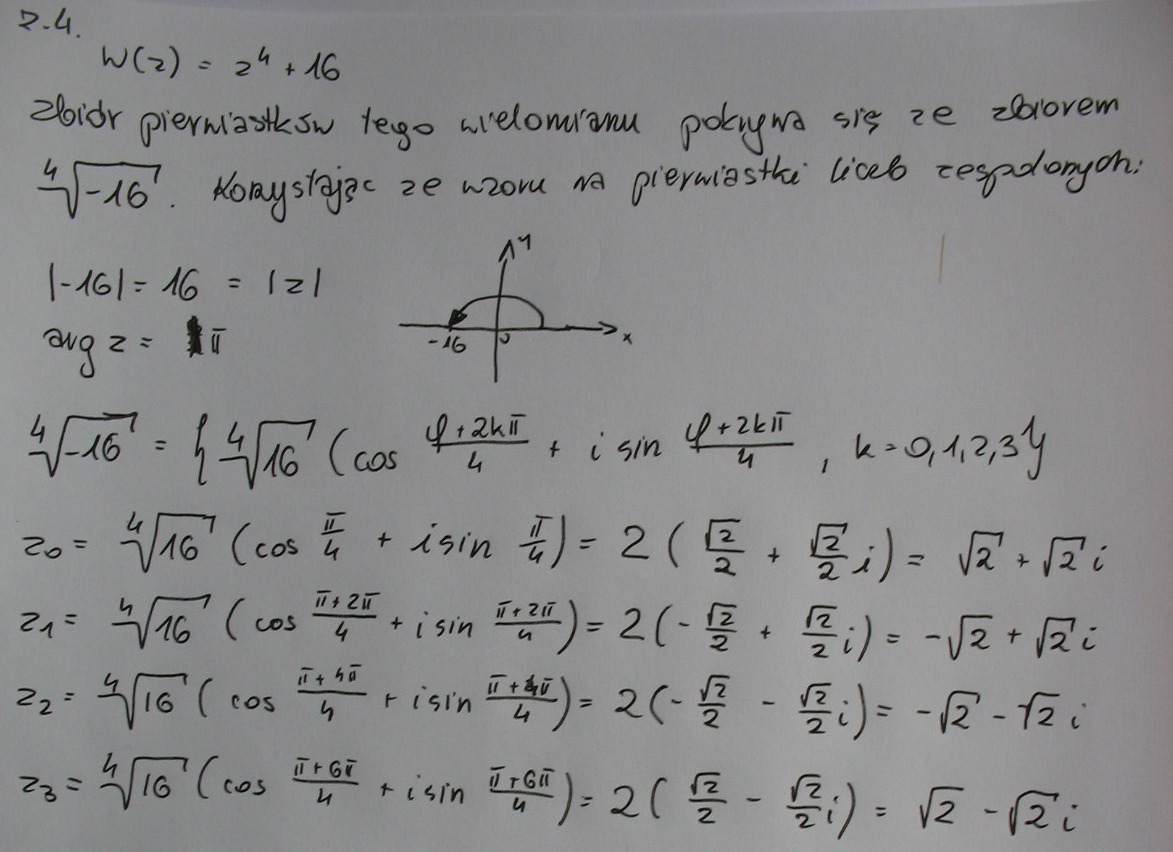 z.4.
W(z) = z⁴ + 16
Zbiór pierwiastków tego wielomianu pokrywa się ze zbiorem
⁴√-16. Korzystając ze wzoru na pierwiastki liczb zespolonych:
|-16| = 16 = |z|
arg z = π
y
-16 0 x
⁴√-16 = { ⁴√16 (cos (φ+2kπ)/4 + i sin (φ+2kπ)/4 , k = 0,1,2,3}
z₀ = ⁴√16 (cos π/4 + i sin π/4) = 2 (√2/2 + √2/2 i) = √2 + √2 i
z₁ = ⁴√16 (cos (π+2π)/4 + i sin (π+2π)/4) = 2(-√2/2 + √2/2 i) = -√2 + √2 i
z₂ = ⁴√16 (cos (π+4π)/4 + i sin (π+4π)/4) = 2(-√2/2 - √2/2 i) = -√2 - √2 i
z₃ = ⁴√16 (cos (π+6π)/4 + i sin (π+6π)/4) = 2(√2/2 - √2/2 i) = √2 - √2 i